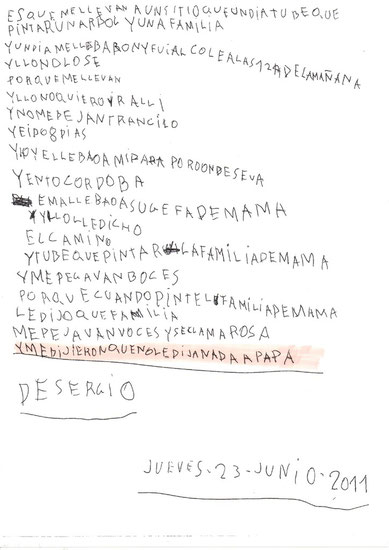 ES QUE MELLEVAN A UN SITIO QUE UN DIA TUBE QUE
PINTAR UN ARBOL Y UNA FAMILIA
Y UN DIA MELLEBARON Y FUI AL COLE A LAS 12 R DE LA MAÑANA
Y LLO NO LO SE
PORQUE MELLEVAN
Y LLO NO QUIERO YR ALLI
Y NO ME DEJAN TRANCILO
Y E IDO 8 DIAS
Y HOY E LLEBADO A MI PAPA POR DONDE SE VA
Y EN TO CORDOBA
E MALLEBADO A SU GEFA DE MAMA
Y LLO LLE DICHO
EL CAMINO
Y TUBE QUE PINTAR LA FAMILIA DE MAMA
Y ME PEGAVAN BOCES
PORQUE CUANDO PINTE L FAMILIA DE MAMA
LE DIJO QUE FAMILIA
ME PEJAVAN VOCES Y SE CLAMA ROSA
Y ME DIJIERON QUE NO LE DIJA NADA A PAPA
DE SERGIO
JUEVES-23-JUNIO-2011